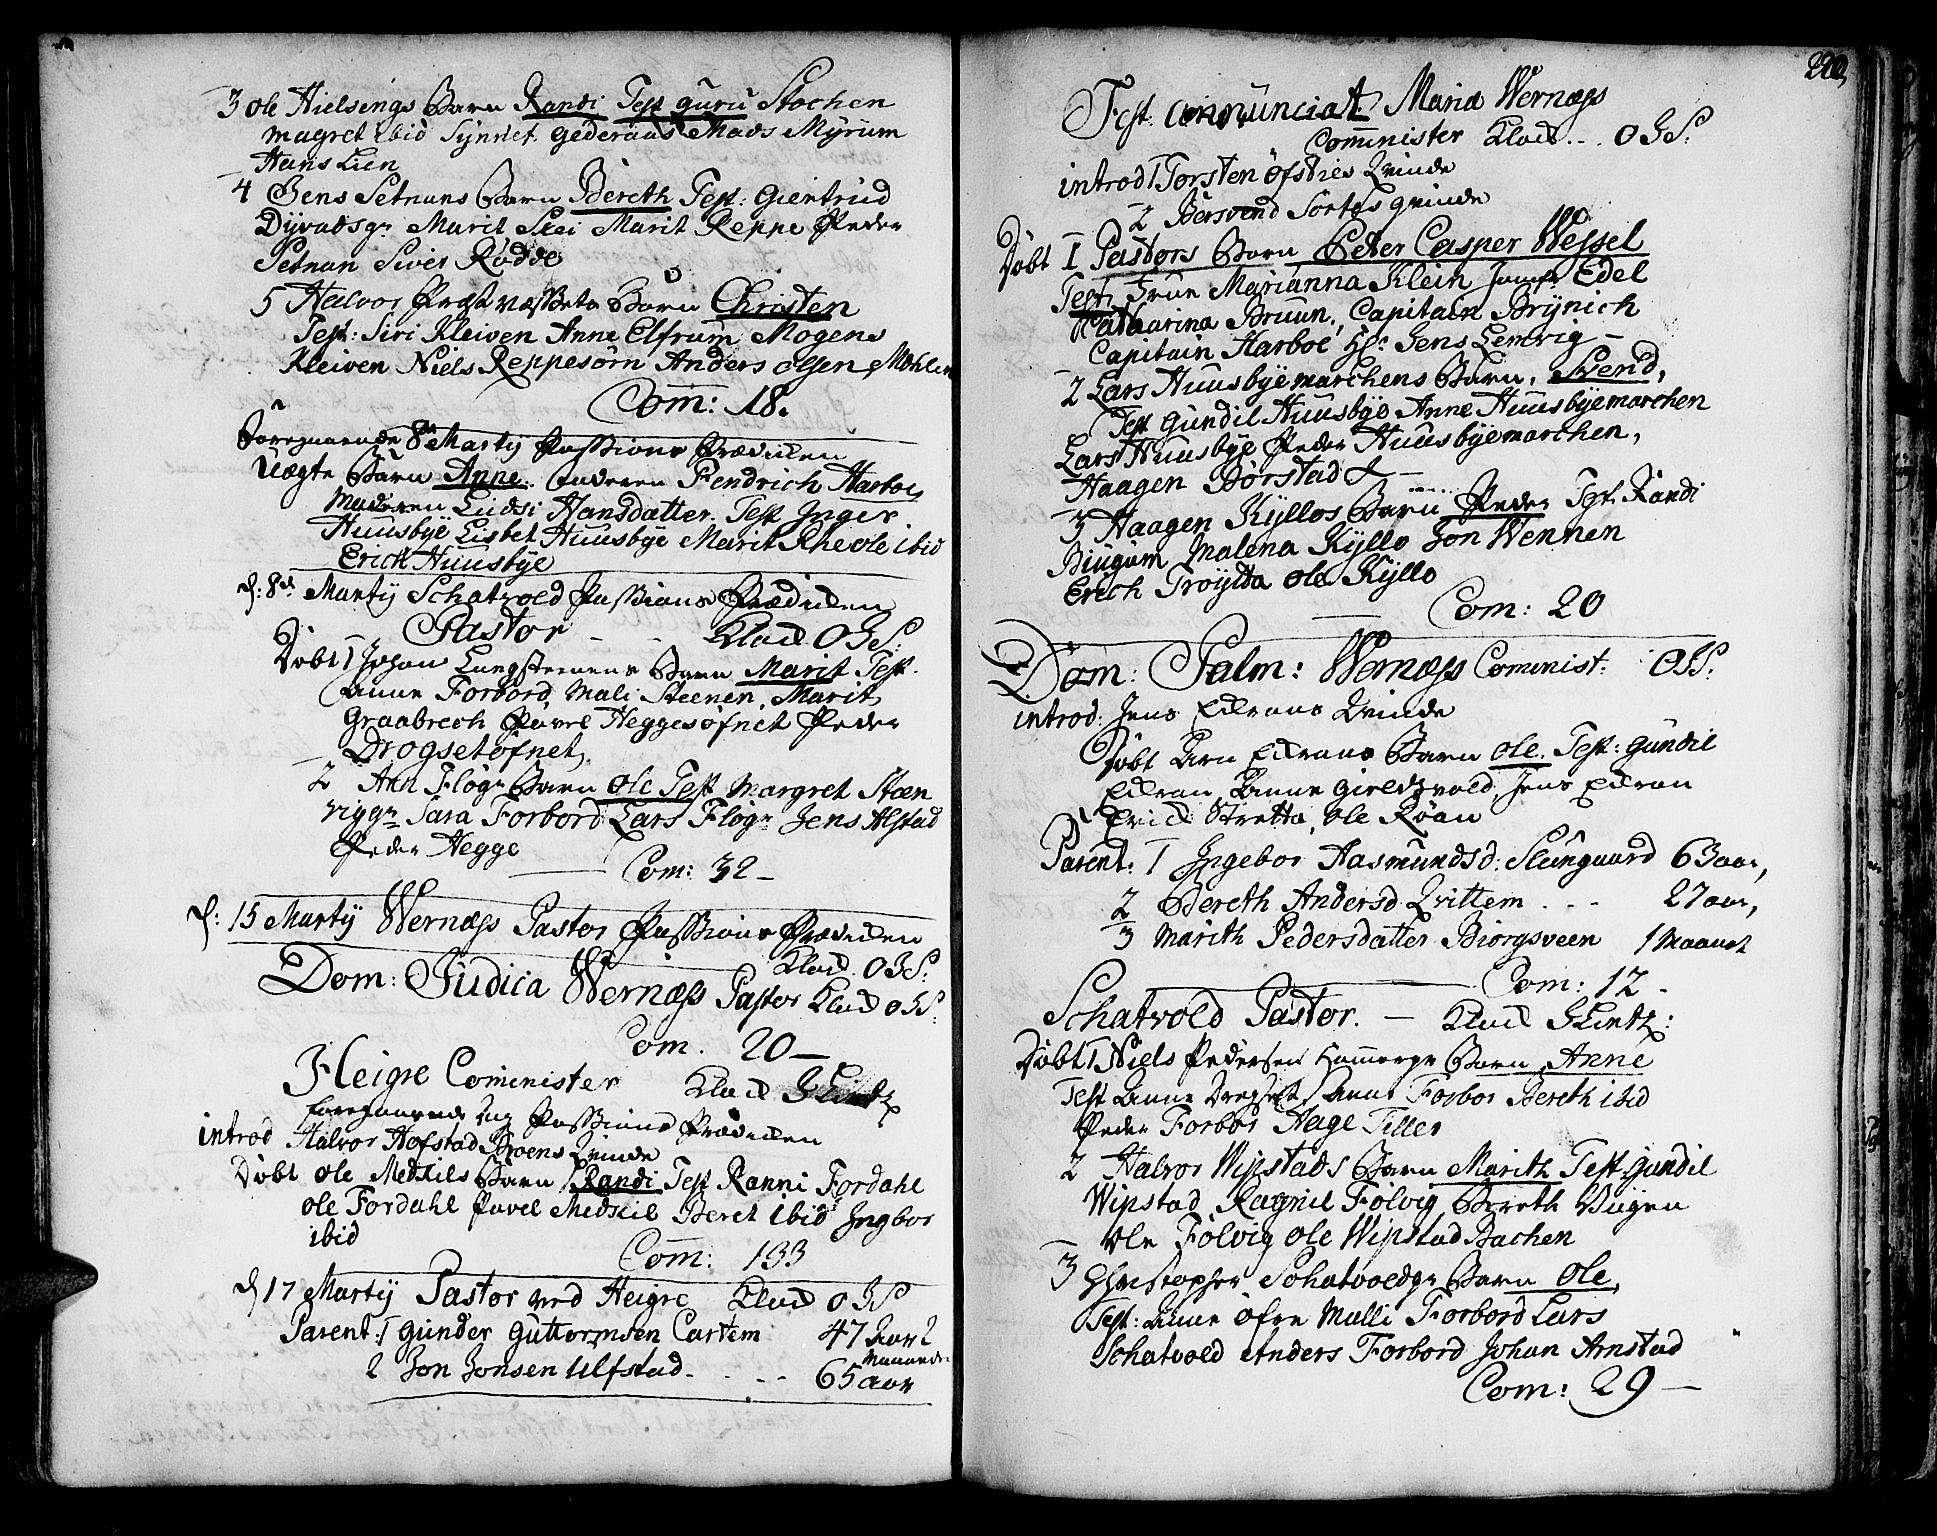 3 Ole Hielsengs Barn Randi Test Guru Stochen
Magret ibid Synnet Gederaas Mads Myrum
Hans Lien
4 Jens Setnans Barn Bereth Test: Giertrud
Dyvadsgr Marit Slei Marit Reppe Peder
Setnan Siver Rodde
5 Halvor Barn Christen
Test: Siri Kleiven Anne Elfrum Mogens
Kleiven Niels Reppesørn Anders Olsen Mohlen
Com: 18.
Foregaaende 8de Martij Passions Prædiken
Uægte Barn Anne. Faderen Fendrich Harboe,
Moderen Ludsi Hansdatter. Test Inger
Huusbÿe Lisbet Huusbye Marit Rhe Ole ibid
Erich Huusbÿe
d: 8de Martij Schatvold Passions Prædiken
Pastor - - Klock O S:
Døbt 1 Johan Langsteenens Barn Marit Test.
Anne Forbord, Mali Steenen, Marit
Graabrech Pavel Heggesøfnet Peder
Drogsetøfnet,
2 Arn Fløgn Barn Ole Test Margret Steen
viggn Sara Forbord Lars Fløgn Jens Alstad
Peder Hegge
Com: 32 -
d: 15 Martij Wernæss Pastor Passions Prædiken
Klock. O S:
Dom: Judica Wernæss Pastor Klock O S:
Com. 20 -
Heigre Cominister Klock Glintz
foregaaende Dag Passions Prædiken
introd Halvor Hofstad Moens Qvinde
Døbt Ole Medskiels Barn Randi Test Ranni Fordahl
Ole Fordahl Pavel Medskiel Beret ibid Ingbor
ibid
Com: 133
d 17 Martij Pastor ved Heigre Klock O S
Parent: 1 Gunder Guttormsen Cartem 47 Aar 2
Maaneder
2 Jon Jonsen Ulfstad - - - 65 aar
220,
Fest: Annunciat: Mariæ Wernæss
Cominister Klock .. O S:
introd 1 Torsten Øfsties Qvinde
2 Bersvend Sortes qvinde
Døbt 1 Pastors Barn Peter Casper Wessel
Test: Frue Marianna Klein Jomfr Edel
Catharina Bruun, Capitain Brÿnich
Capitain Harboe Hr: Jens Lemvig -
2 Lars Huusbÿemarchens Barn, Svend,
Test Gundil Huusbÿe Anne Huusbyemarchen
Lars Huusbÿe Peder Huusbyemarchen,
Haagen Børstad -
3 Haagen Kÿllos Barn Peder Test Randi
Biugum Malena Kÿllo Jon Wennen
Erich Troÿtta Ole Kÿllo
Com: 20
Dom: Palm: Wernæss Cominist: O S:
introd: Jens Eidrans Qvinde
Døbt Arn Eidrans Barn Ole. Test: Gundil
Eidran, Anne Gieldsvold, Jens Eidran
Erich Stretta, Ole Røan
Parent: 1 Ingebor Aasmundsd: Slungaard 63 aar,
2 Bereth Andersd. Qvittem - - - 27 aar,
3 Marith Pedersdatter Biorgsveen 1 Maanet
Com: 12 -
Schatvold Pastor. - Klock Glintz:
Døbt 1 Niels Pedersen Hamergr Barn Anne
Test Anne Anne Forbor Bereth ibid
Peder Forbor Aage Tiller
2 Halvor Wipstads Barn Marith Test Gundil
Wipstad, Ragnil Følvig, Bereth Viigen
Ole Følvig Ole Wipstad Bachen
3 Christopher Schatvoldgr Barn Ole,
Test: Anne Øfre Malli Forbord Lars
Schatvold Anders Forbord Johan Arnstad
Com: 29 -